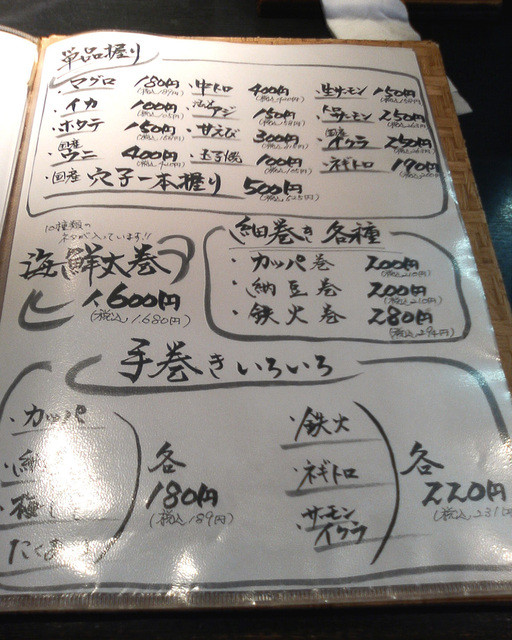 単品握り
・マグロ 150円 ・中トロ 400円 ・生サーモン 150円
・イカ 100円 アジ 150円 トロサーモン 250円
・ホタテ 150円 ・甘えび 300円 国産イクラ 250円
国産ウニ 400円 ・玉子焼 100円 ・ネギトロ 190円
・国産 穴子一本握り 500円
(税込525円)
10種類の
ネタが入っています!!
海鮮太巻
1,600円
(税込1,680円)
細巻き 各種
・カッパ巻 200円
(税込210円)
・納豆巻 200円
(税込210円)
・鉄火巻 280円
(税込294円)
手巻きいろいろ
・カッパ
各
180円
(税込189円)
・鉄火
・ネギトロ
・サーモンイクラ
各
220円
(税込231円